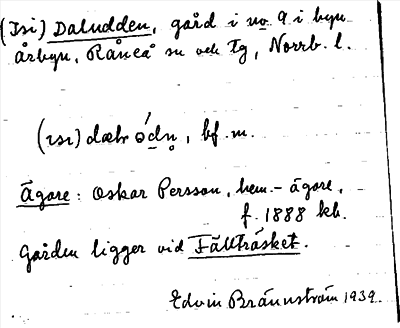 (Isi) Daludden, gård i no 9 i byn
Årbyn, Råneå sn och tg, Norrb. l.
(ɪsɪ) bf. m.
Ägare: Oskar Persson, hem.-ägare,
f. 1888 kb.
Gården ligger vid Fällträsket.
Edvin Brännström 1939.